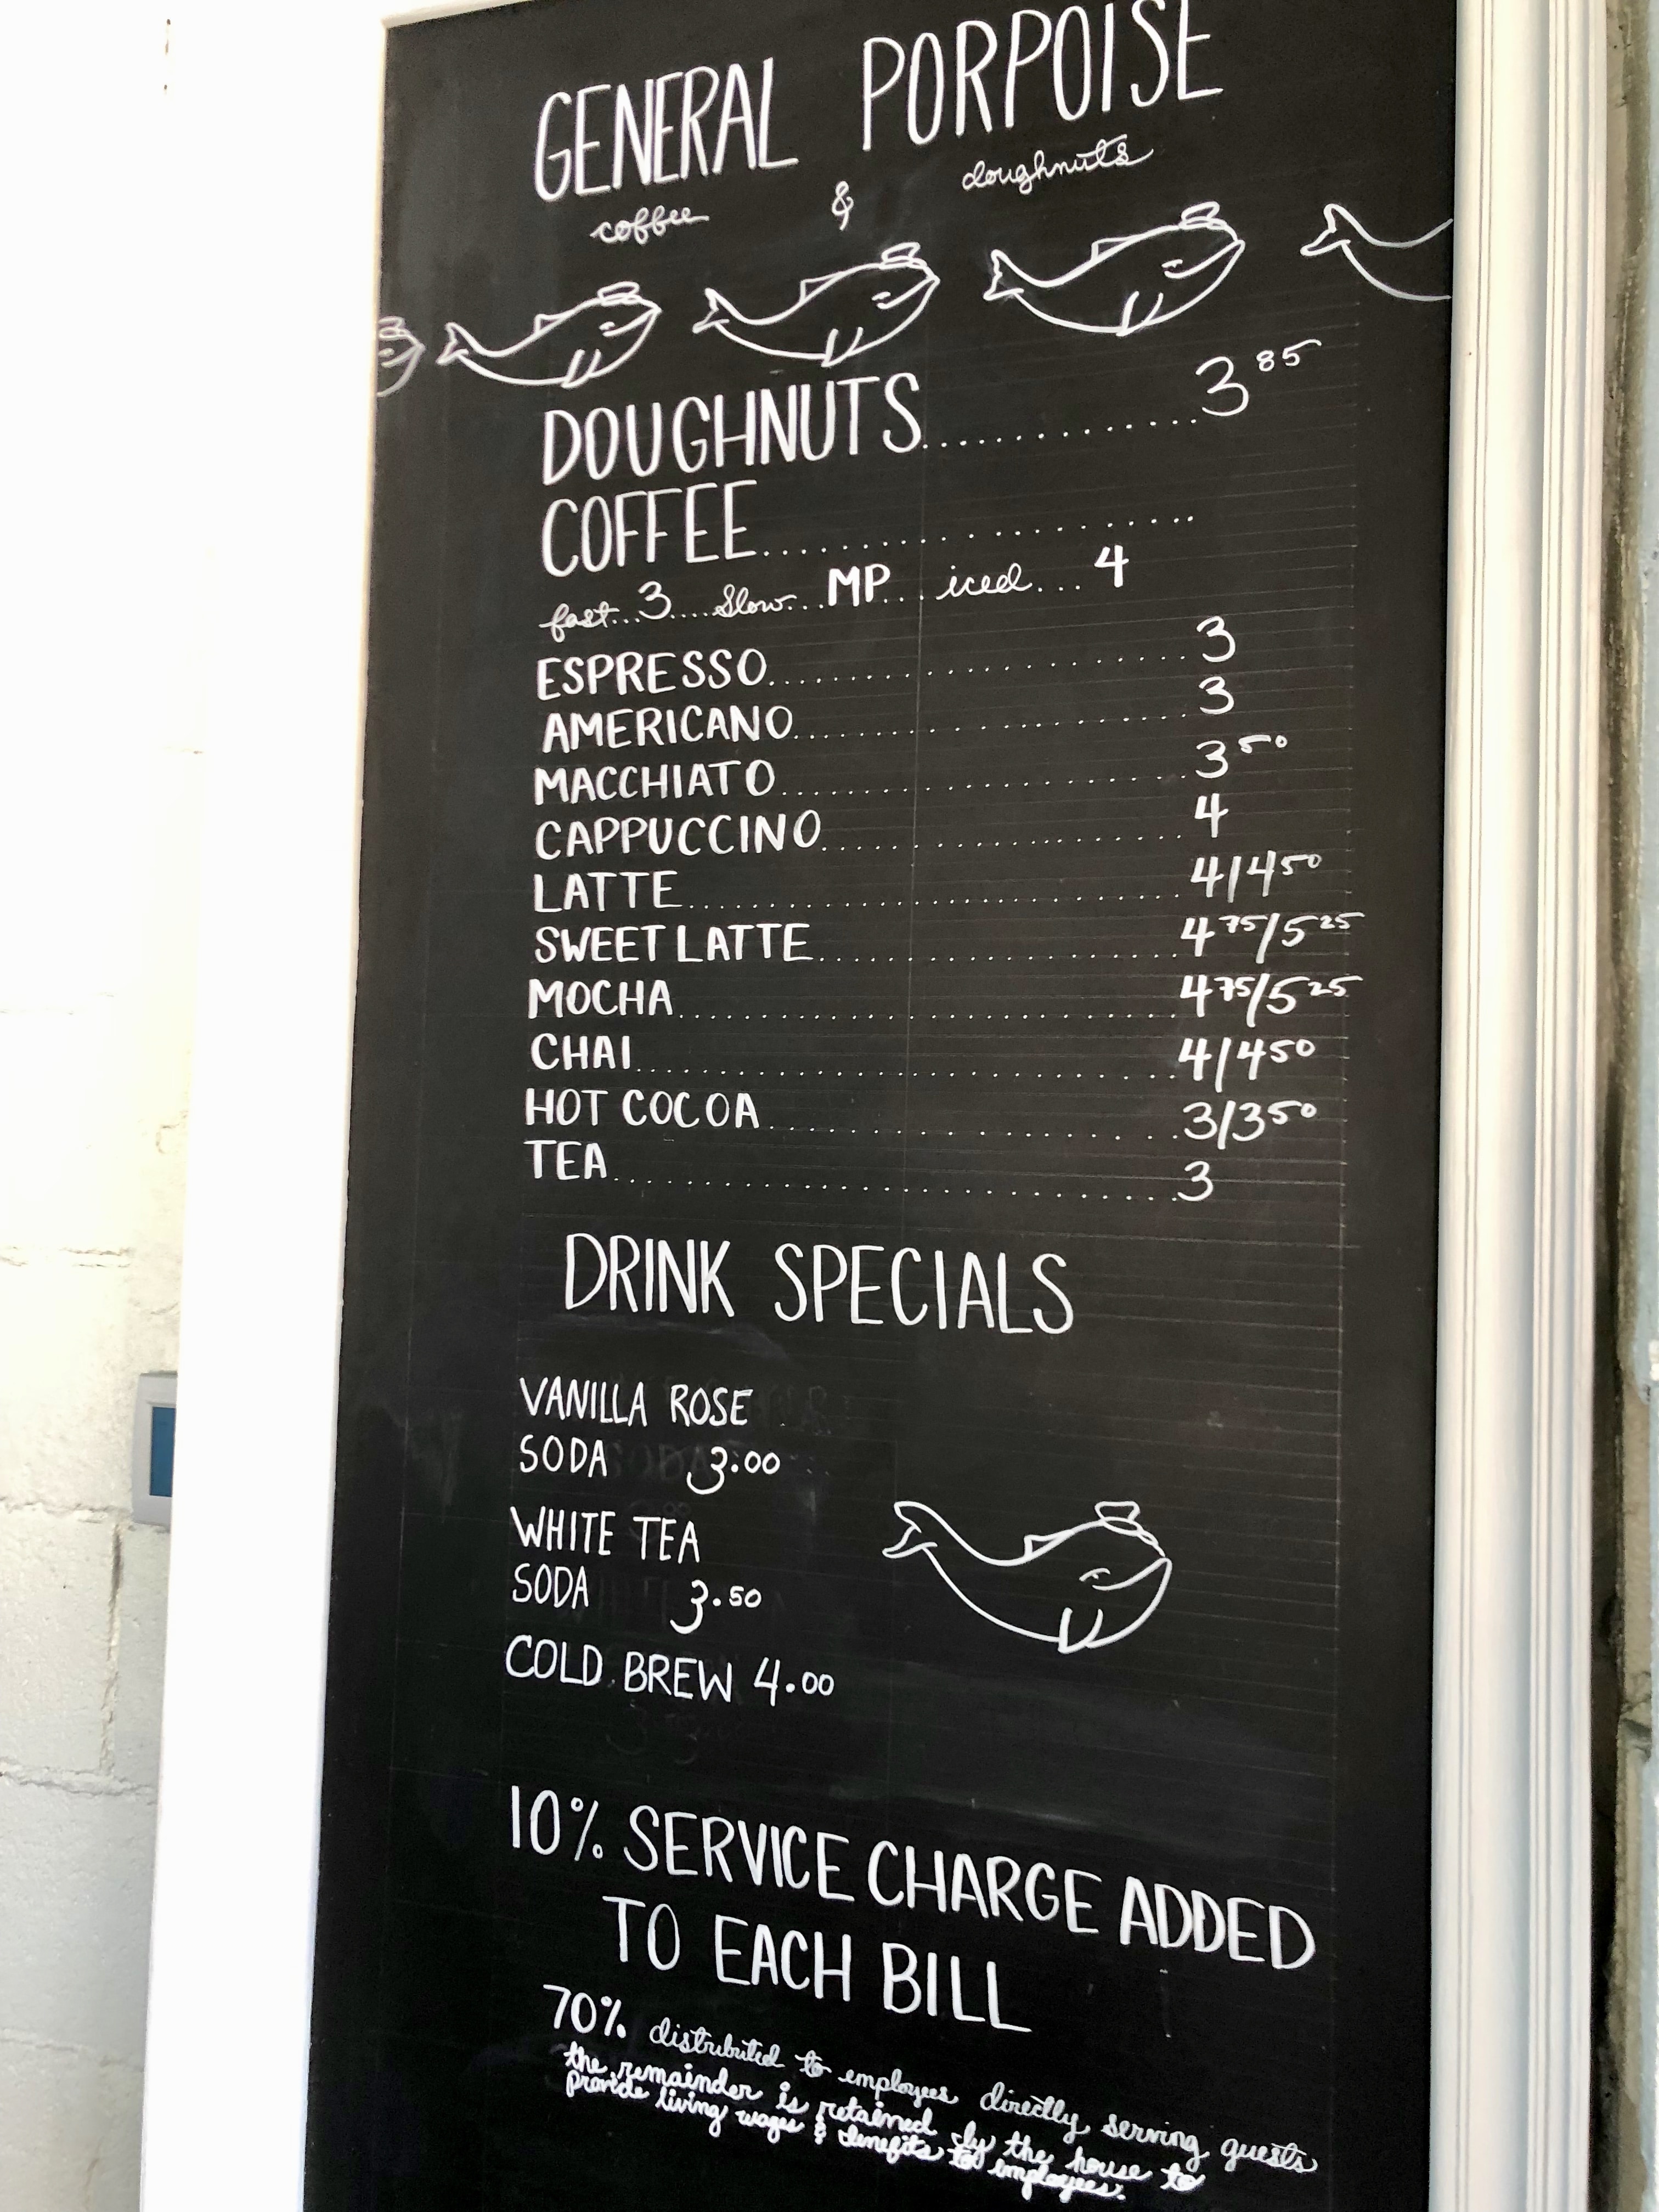 GENERAL PORPOISE
coffee & doughnuts
DOUGHNUTS.............3 85
COFFEE....................
fast...3....Slow...MP...iced...4
ESPRESSO....................3
AMERICANO....................3
MACCHIATO....................3 50
CAPPUCCINO....................4
LATTE....................4/4 50
SWEET LATTE....................4 75/5 25
MOCHA....................4 75/5 25
CHAI....................4/4 50
HOT COCOA....................3/3 50
TEA....................3
DRINK SPECIALS
VANILLA ROSE
SODA 3.00
WHITE TEA
SODA 3.50
COLD BREW 4.00
10% SERVICE CHARGE ADDED
TO EACH BILL
70% distributed to employees directly serving guests
the remainder is retained by the house to
provide living wages & benefits to employees.